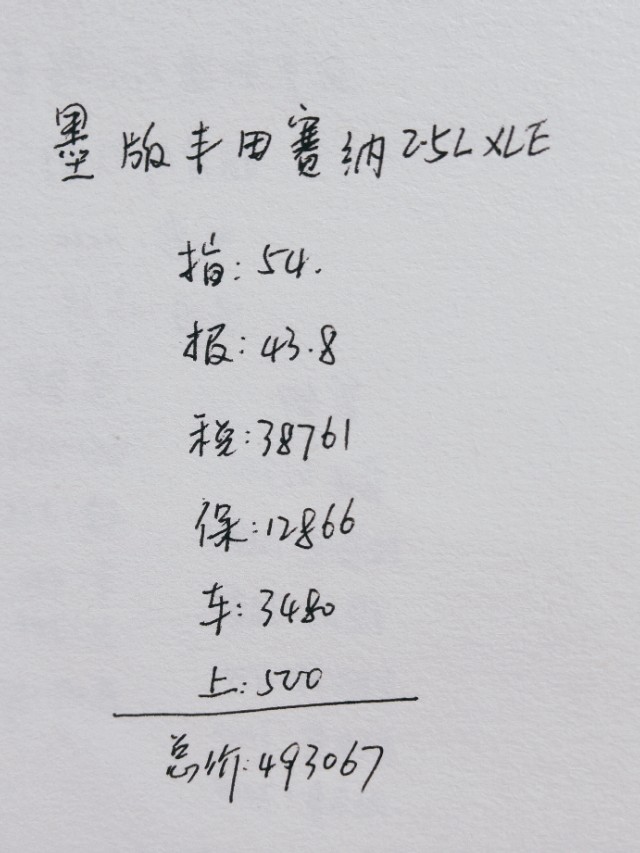 墨版丰田赛纳2.5L XLE
指:54.
报:43.8
税:38761
保:12866
车:3480
上:500
总价:493067